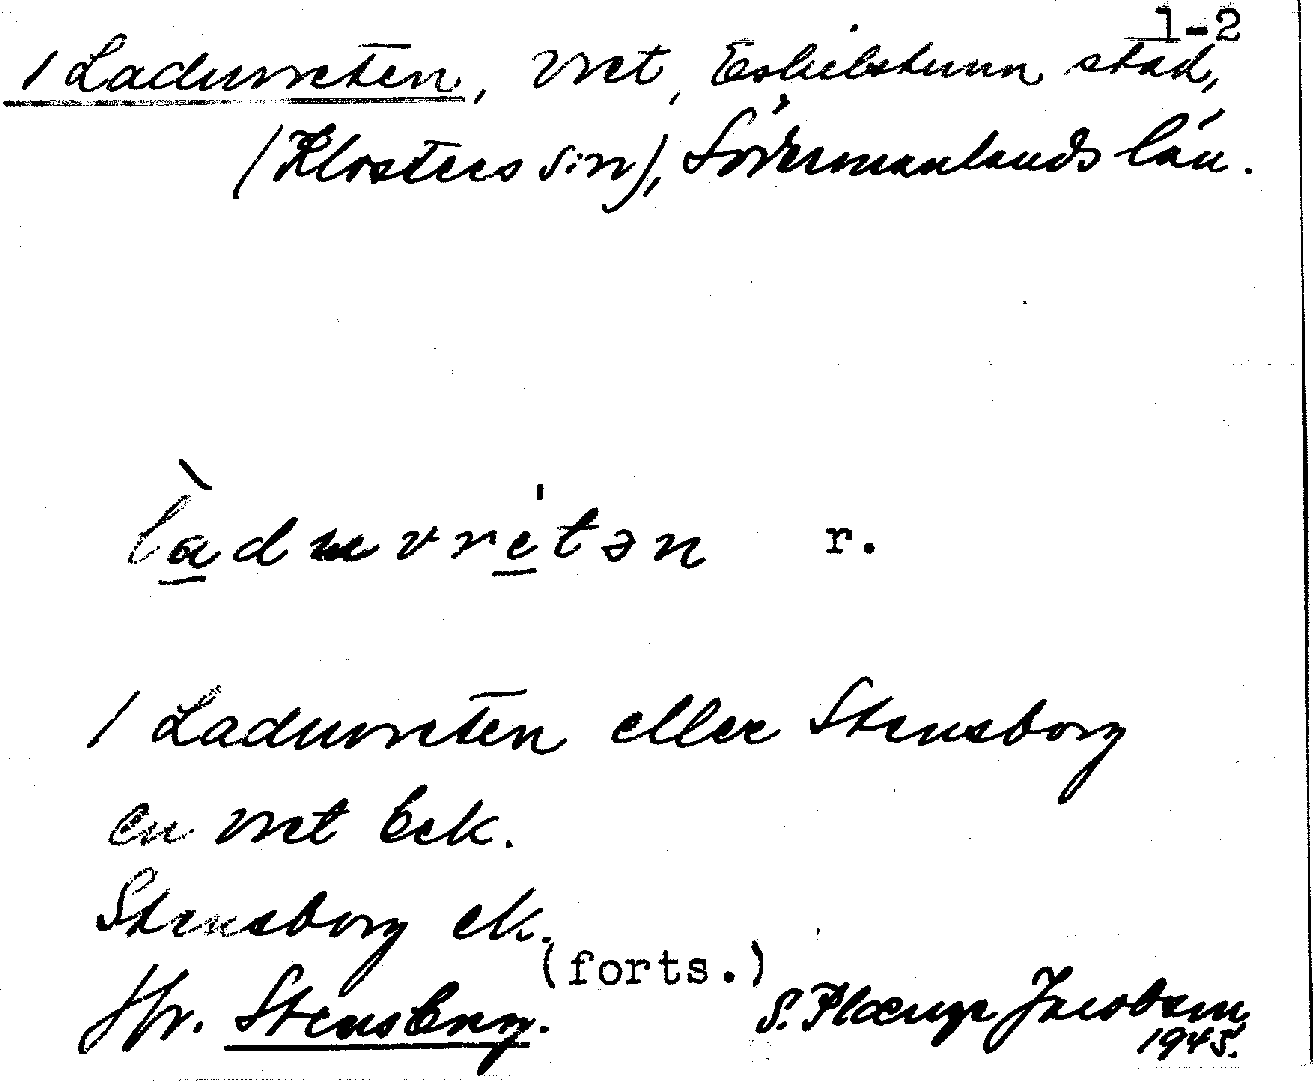 1-2
/ Laduvreten, vret, Eskilstuna stad,
(Klosters sn), Södermanlands län.
làduvretən r.
/ Laduvreten eller Stensborg
en vret bek.
Stensborg ek.
(forts.)
Jfr. Stensborg. S. Plænge Jacobson
1945.